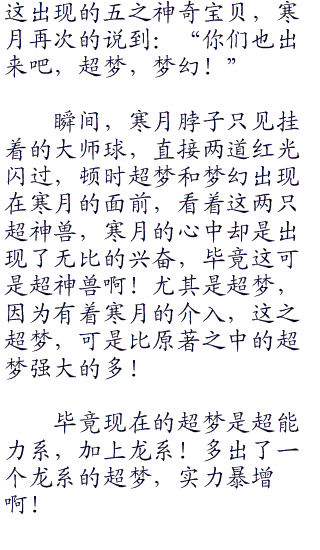 这出现的五之神奇宝贝，寒
月再次的说到：“你们也出
来吧，超梦，梦幻！”
瞬间，寒月脖子只见挂
着的大师球，直接两道红光
闪过，顿时超梦和梦幻出现
在寒月的面前，看着这两只
超神兽，寒月的心中却是出
现了无比的兴奋，毕竟这可
是超神兽啊！尤其是超梦，
因为有着寒月的介入，这之
超梦，可是比原著之中的超
梦强大的多！
毕竟现在的超梦是超能
力系，加上龙系！多出了一
个龙系的超梦，实力暴增
啊！